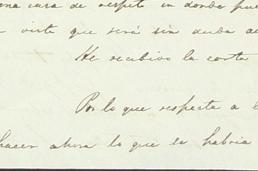 una cara de respeto en donde pue
viste que será sin duda de
He recibido la carta
Por lo que respecta a l
hacer ahora lo que le habria